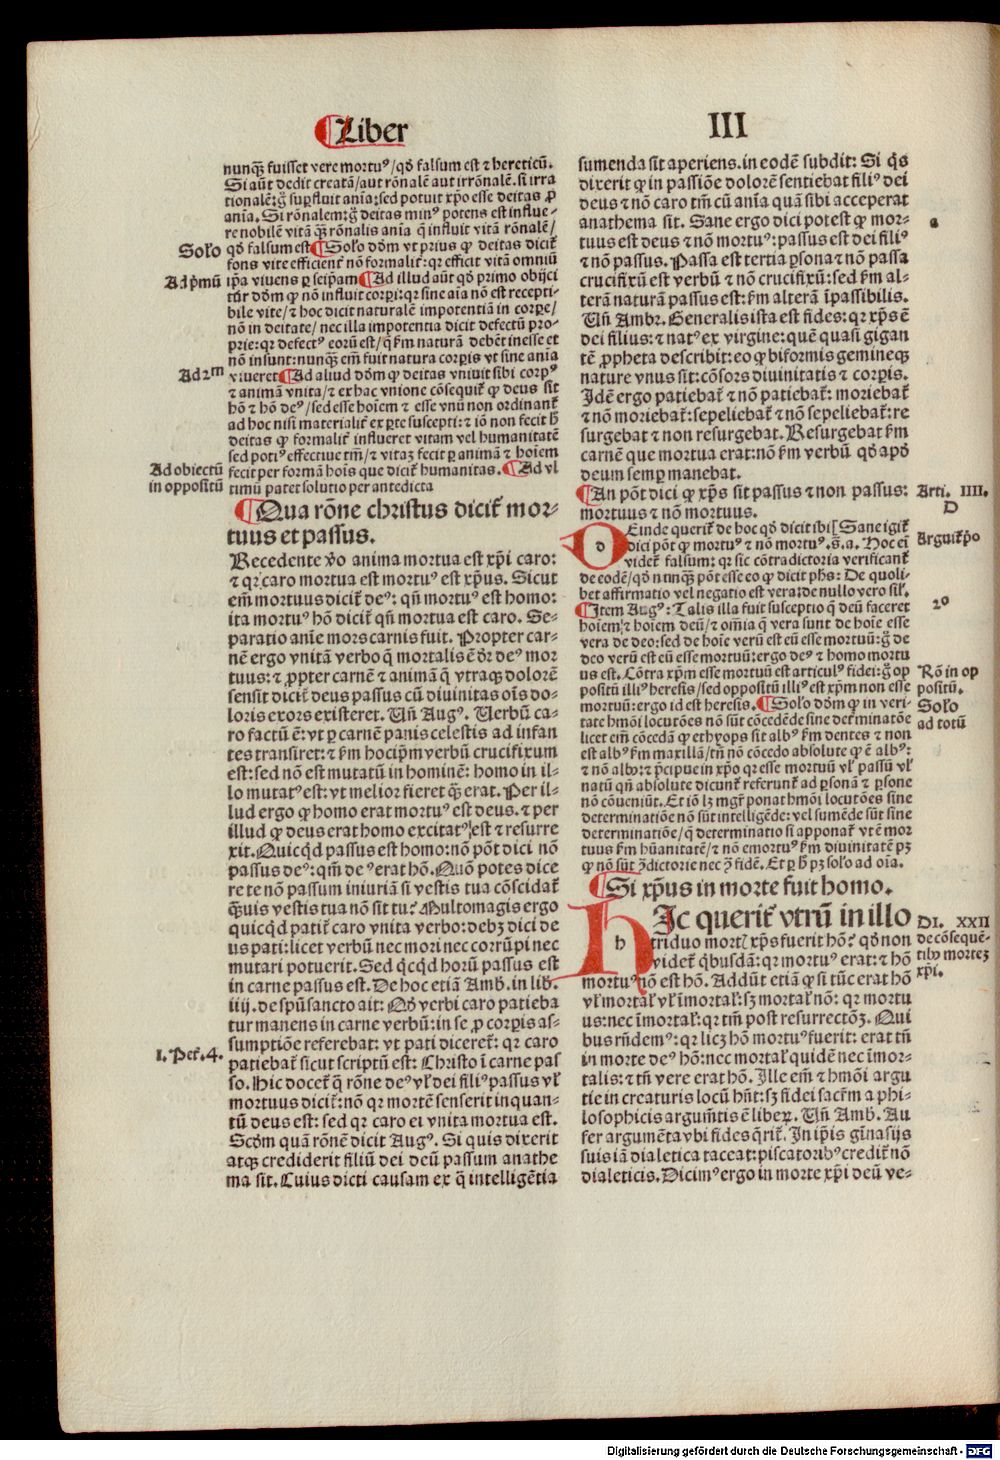 ¶Liber
III
nunq̃ fuisset vere mortuꝰ/qd̕ falsum est ⁊ hereticū.
Si aūt dedit creatā/aut rōnalē aut irrōnalē.si irra
tionalē:g̕ suꝑfluit anīa:sed potuit xp̄o esse deitas ꝓ
anīa. Si rōnalem:g̕ deitas minꝰ potens est influe-
re nobilē vitā q̃ꝫ rōnalis anīa q̄ influit vitā rōnalē/
Solo
qd̕ falsum est ¶Solo dōm vt prius ꝙ deitas dicit̕
fons vite efficient̕ nō formalit̕:qꝛ efficit vitā omniū
Ad p̄mū
ip̄a viuens ꝑ seip̄am ¶Ad illud aūt qd̕ primo obijci
tur̕ dōm ꝙ nō influit corꝑi:qꝛ sine aīa nō est recepti-
bile vite/⁊ hoc dicit naturalē impotentiā in corꝑe/
nō in deitate/nec illa impotentia dicit defectū pro-
prie:qꝛ defectꝰ eorū est/q̄ km̄ naturā debēt inesse et
nō insunt:nunq̃ em̄ fuit natura corꝑis vt sine anīa
Ad 2m
viueret ¶Ad aliud dōm ꝙ deitas vniuit sibi corpꝰ
⁊ animā vnita/⁊ ex hac vnione cōsequit̕ ꝙ deus sit
hō ⁊ hō deꝰ/sed esse hoīem ⁊ esse vnū non ordinant̕
ad hoc nisi materialit̕ ex ꝑte suscepti:⁊ iō non fecit h̕
deitas ꝙ formalit̕ influeret vitam vel humanitatē
sed potiꝰ effectiue tm̄/⁊ vitaꝫ fecit ꝑ animā ⁊ hoīem
Ad obiectū
in oppositū
fecit per formā hoīs que dicit̕ humanitas. ¶Ad vl
timū patet solutio per antedicta
¶Qua rōne christus dicit̕ mor-
tuus et passus.
Recedente v̕o anima mortua est xp̄i caro:
⁊ qꝛ caro mortua est mortuꝰ est xp̄us. Sicut
em̄ mortuus dicit̕ deꝰ: qn̄ mortuꝰ est homo:
ita mortuꝰ hō dicit̕ qn̄ mortua est caro. Se-
paratio anīe mors carnis fuit. Propter car-
nē ergo vnitā verbo q̄ mortalis ē dr̄ deꝰ mor
tuus: ⁊ ꝓpter carnē ⁊ animā q̄ vtraqꝫ dolorē
sensit dicit̕ deus passus cū diuinitas oīs do-
loris exors existeret. Vn̄ Augꝰ. Verbū ca-
ro factū ē: vt ꝑ carnē panis celestis ad infan
tes transiret: ⁊ km̄ hoc ip̄m verbū crucifixum
est: sed nō est mutatū in hominē: homo in il-
lo mutatꝰ est: vt melior fieret q̃ꝫ erat. Per il-
lud ergo ꝙ homo erat mortuꝰ est deus. ⁊ per
illud ꝙ deus erat homo excitatꝰ est ⁊ resurre
xit. Quicqd̕ passus est homo: nō pōt dici nō
passus deꝰ: qm̄ deꝰ erat hō. Quō potes dice
re te nō passum iniuriā si vestis tua cōscidat̕
q̃uis vestis tua nō sit tu? Multomagis ergo
quicqd̕ patit̕ caro vnita verbo: debꝫ dici de
us pati: licet verbū nec mori nec corrūpi nec
mutari potuerit. Sed qcqd̕ horū passus est
in carne passus est. De hoc etiā Amb̕. in lib̕.
iiij. de spūsancto ait: Qd̕ verbi caro patieba
tur manens in carne verbū: in se ꝓ corꝑis as-
sumptiōe referebat: vt pati diceret̕: qꝛ caro
I. Pet̕. 4.
patiebat̕ sicut scriptū est: Christo ī carne pas
so. Hic docet̕ q̄ rōne deꝰ vl̕ dei filiꝰ passus vl̕
mortuus dicit̕: nō qꝛ mortē senserit inquan-
tū deus est: sed qꝛ caro ei vnita mortua est.
Scd̕m quā rōnē dicit Augꝰ. Si quis dixerit
atqꝫ crediderit filiū dei deū passum anathe
ma sit. Cuius dicti causam ex q̄ intelligētia
sumenda sit aperiens. in eodē subdit: Si q̄s
dixerit ꝙ in passiōe dolorē sentiebat filiꝰ dei
deus ⁊ nō caro tm̄ cū anīa quā sibi acceperat
anathema sit. Sane ergo dici potest ꝙ mor-
a
tuus est deus ⁊ nō mortuꝰ: passus est dei filiꝰ
⁊ nō passus. Passa est tertia ꝑsona ⁊ nō passa
crucifixū est verbū ⁊ nō crucifixū: sed km̄ al-
terā naturā passus est: km̄ alterā īpassibilis.
Vn̄ Ambr. Generalis ista est fides: qꝛ xp̄s ē
dei filius: ⁊ natꝰ ex virgine: quē quasi gigan
tē ꝓpheta describit: eo ꝙ biformis gemineqꝫ
nature vnus sit: cōsors diuinitatis ⁊ corꝑis.
Idē ergo patiebat̕ ⁊ nō patiebat̕: moriebat̕
⁊ nō moriebat̕: sepeliebat̕ ⁊ nō sepeliebat̕: re
surgebat ⁊ non resurgebat. Resurgebat km̄
carnē que mortua erat: nō km̄ verbū qd̕ apd̕
deum semꝑ manebat.
¶An pōt dici ꝙ xp̄s sit passus ⁊ non passus:
Arti. IIII.
mortuus ⁊ nō mortuus.
D
DEinde querit̕ de hoc qd̕ dicit ibi [Sane igit̕
dici pōt ꝙ mortuꝰ ⁊ nō mortuꝰ. s̄. a. Hoc ei̅
Arguit̕ p̄o
videt̕ falsum: qꝛ sic cōtradictoria verificant̕
de eodē/qd̕ nunq̃ pōt esse eo ꝙ dicit ph̄s: De quoli-
bet affirmatio vel negatio est vera: de nullo vero sil̕.
2o
¶Item Augꝰ: Talis illa fuit susceptio q̄ deū faceret
hoīem/⁊ hoīem deū/⁊ om̄ia q̄ vera sunt de hoīe esse
vera de deo: sed de hoīe verū est eū esse mortuū: g̕ de
deo verū est eū esse mortuū: ergo deꝰ ⁊ homo mortu
Rō in op
positū.
us est. Cōtra xp̄m esse mortuū est articulꝰ fidei: g̕ op
positū illiꝰ heresis/sed oppositū illiꝰ est xp̄m non esse
Solo
ad totū
mortuū: ergo id est heresis. ¶Solo dōm ꝙ in veri-
tate hmōi locutōes nō sūt cōcedēde sine determinatōe
licet em̄ cōcedā ꝙ ethyops sit albꝰ km̄ dentes ⁊ non
est albꝰ km̄ maxillā/tn̄ nō cōcedo absolute ꝙ ē albꝰ:
⁊ nō albꝰ: ⁊ p̄cipue in xp̄o qꝛ esse mortuū vl̕ passū vl̕
natū qn̄ absolute dicunt̕ referunt̕ ad ꝑsonā ⁊ ꝑsone
nō cōueniūt. Et iō lꝫ mgr̄ ponat hmōi locutōes sine
determinatiōe nō sūt intelligēde: vel sumēde sūt sine
determinatiōe/q̄ determinatio si apponat̕ vt ē mor
tuus km̄ hūanitatē/⁊ nō ē mortuꝰ km̄ diuinitatē pꝫ
ꝙ nō sūt ꝯdictorie nec ꝯ fidē. Et ꝑ h̕ pꝫ solo ad oīa.
¶Si xp̄us in morte fuit homo.
HIc querit̕ vtrū in illo
DI. XXII
de cōsequē-
tibꝰ mortēꝫ
xp̄i.
triduo mortꝭ xp̄s fuerit hō? qd̕ non
videt̕ qbusdā: qꝛ mortuꝰ erat: ⁊ hō
mortuꝰ nō est hō. Addūt etiā ꝙ si tūc erat hō
vl̕ mortal̕ vl̕ īmortal̕: sꝫ mortal̕ nō: qꝛ mortu
us: nec īmortal̕: qꝛ tm̄ post resurrectōꝫ. Qui
bus rn̄demꝰ: qꝛ licꝫ hō mortuꝰ fuerit: erat tn̄
in morte deꝰ hō: nec mortal̕ quidē nec īmor-
talis: ⁊ tn̄ vere erat hō. Ille em̄ ⁊ hmōi argu
tie in creaturis locū hn̄t: sꝫ fidei sacr̄m a phi-
losophicis argum̄tis ē liberꝫ. Vn̄ Amb̕. Au
fer argumēta vbi fides q̄rit̕. In ip̄is gīnasijs
suis iā dialetica taceat: piscatoribꝰ credit̕ nō
dialeticis. Dicimꝰ ergo in morte xp̄i deū ve-
Digitalisierung gefördert durch die Deutsche Forschungsgemeinschaft - DFG